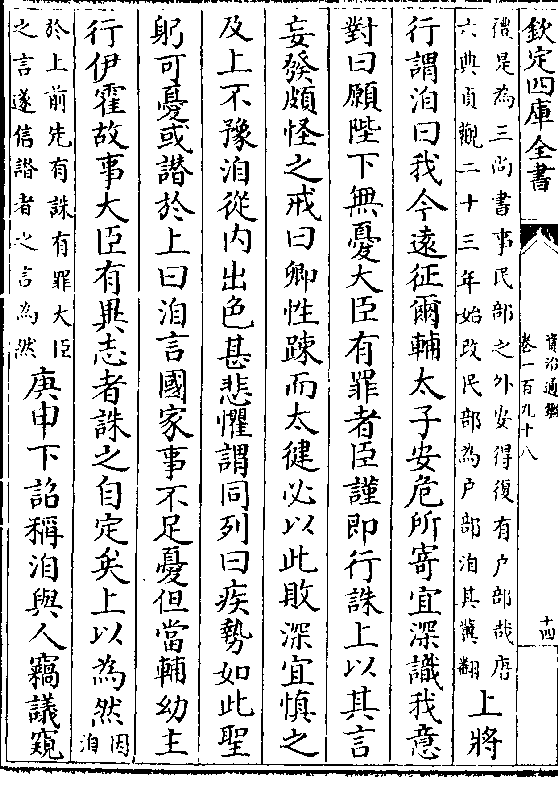 欽定四庫全書
資治通鑑
卷一百九十八
十四
禮是為三尚書事民部之外安得復有户部哉唐
六典貞觀二十三年始改民部為户部洎其冀翻
上將
行謂洎曰我今遠征爾輔太子安危所寄宜深識我意
對曰願陛下無憂大臣有罪者臣謹即行誅上以其言
妄發頗怪之戒曰卿性踈而太徤必以此敗深宜慎之
及上不豫洎從内出色甚悲懼謂同列曰疾勢如此聖
躬可憂或譖於上曰洎言國家事不足憂但當輔幼主
行伊霍故事大臣有異志者誅之自定矣上以為然
因
洎
於上前先有誅有罪大臣
之言遂信譖者之言為然
庚申下詔稱洎與人竊議窺